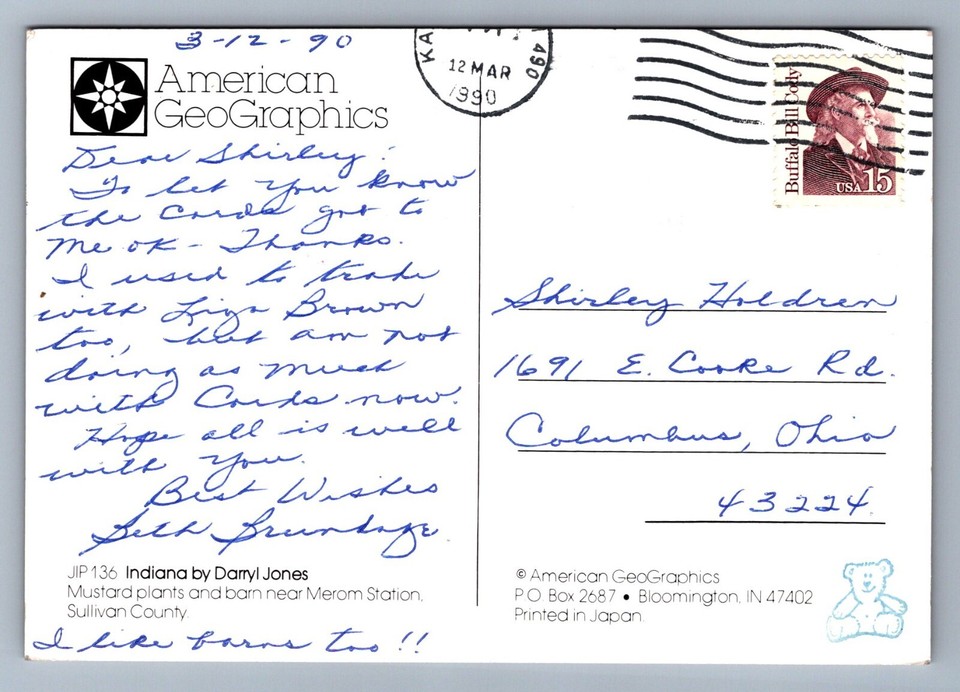 3-12-90
American
GeoGraphics
Dear Shirley:
To let you know
the Cards got to
me ok - Thanks.
I used to trade
with Liza Brown
too, but am not
doing as much
with Cards now.
Hope all is well
with you.
Best Wishes
Beth Brundage
JIP136 Indiana by Darryl Jones
Mustard plants and barn near Merom Station,
Sullivan County.
I like barns too!!
KA
490
12 MAR
1990
Buffalo Bill Cody
USA 15
Shirley Holdren
1691 E. Cooke Rd.
Columbus, Ohio
43224
© American GeoGraphics
P.O. Box 2687 • Bloomington, IN 47402
Printed in Japan